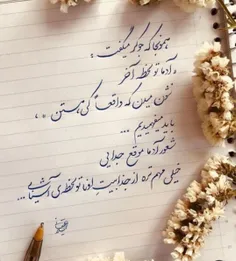 همونجا که جوکر میگفت :
« آدما تو لحظه آخر
نشون میدن که واقعاً کی هستن » ،
باید میفهمیدیم ...
شعور آدما موقع جدایی
خیلی مهم تره از جذابیت اونا تو لحظه‌ی آشنایی ...